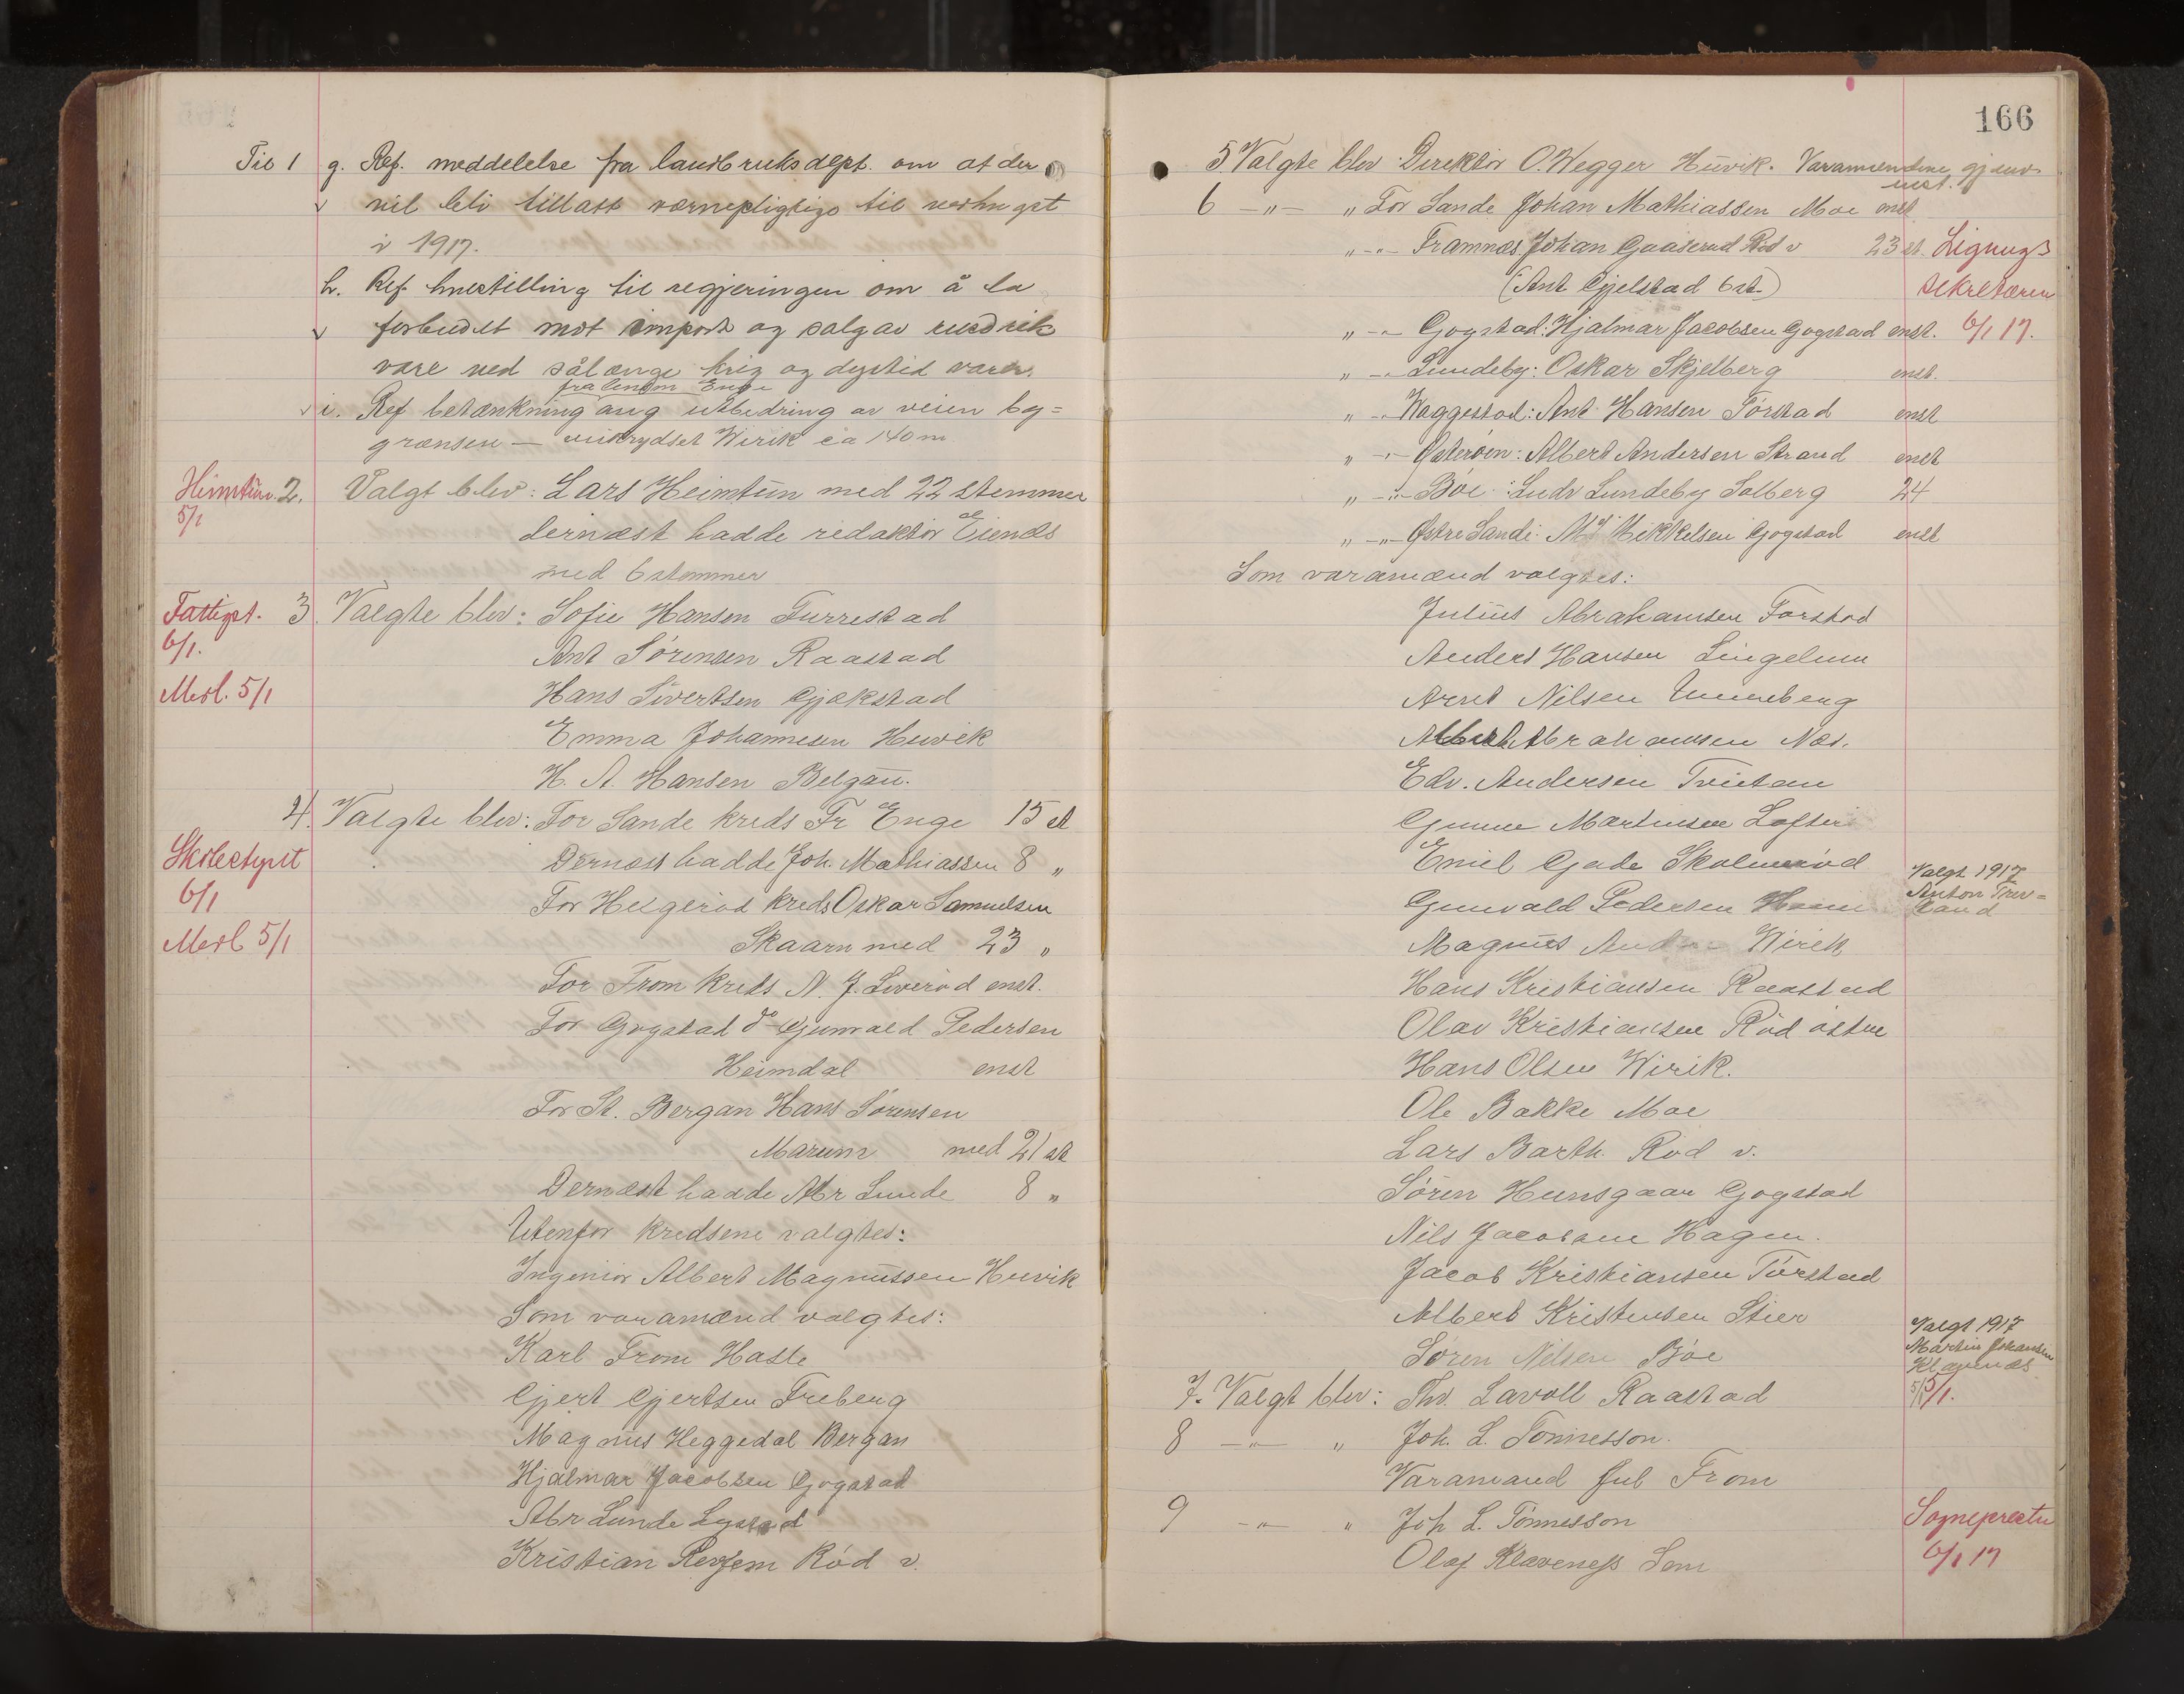 Til 1 g. Ref. meddelelse fra landbruksdept. om at der
vil bli tillatt værnepligtige til vedhugst
i 1917.
h. Ref henstilling til regjeringen om å la
forbudet mot import og salg av rusdrik
vare ved sålænge krig og dyrtid varer.
fra lensm Enge
i. Ref betænkning ang utbedring av veien by=
grænsen — veikrydset Wirik ca 140 m
Heimtun 2. Valgt blev: Lars Heimtun med 22 stemmer
5/1
dernæst hadde redaktør
med 6 stemmer
Fattigst. 3. Valgte blev: Sofie Hansen Furrestad
6/1.
Ant Sörensen Raastad
Medl. 5/1
Hans Sivertsen Gjekstad
Emma Johannesen Huvik
H. A. Hansen Belgau.
4. Valgte blev: For Sande kreds Fr Enge 15 st
Skolestyret
Dernæst hadde Joh. Mathiassen 8 „
6/1
For Helgeröd kreds Oskar Samuelsen
Medl 5/1
Skaarn med 23 „
For From kreds N. J. Liveröd enst.
For Gogstad do Gunvald Pedersen
Heimdal enst
For St. Bergan Hans Sörensen
Marum med 21 st
Dernæst hadde Abr Lunde 8 „
Utenfor kredsene valgtes:
Ingeniör Albert Magnussen Huvik
Som varamænd valgtes:
Karl From Hasle
Gjert Gjertsen Freberg
Magnus Heggedal Bergan
Hjalmar Jacobsen Gogstad
Abr Lunde Lystad
Kristian Revjem Röd v.
166
5. Valgte blev Direktör O. Wegger Huvik. Varamændene gjenv.
enst.
6 —„— „ For Sande Johan Mathiassen Moe enst
„ -„- Framnæs. Johan Gaaserud Röd v 23 st. Lignings
(Ant Gjelstad 6 st) sekretæren
„ -„- Gogstad: Hjalmar Jacobsen Gogstad enst. 6/1 17.
„ -„- Lundeby: Oskar Skjelberg enst.
„ -„- Waggestad: Ant Hansen Törstad enst
„ -„- Österöen: Albert Andersen Strand enst
„ -„- Böe : Ludv Lundeby Solberg 24
„ -„- Östre Sande: Mikkelsen Gogstad enst
Som varamænd valgtes:
Julius Abrahamsen Forstad
Anders Hansen Lingelem
Arnt Nilsen Unneberg
Albert Abrahamsen Næs.
Edv. Andersen Tveitan
Gunner Martinsen
Emil Gade Skolmeröd
Valgt 1917
Gunvald Pedersen
Anton
Magnus Wirik
Hans Kristiansen Raastad
Olav Kristiansen Röd östre
Hans Olsen Wirik.
Ole Bakke Moe
Lars Barth. Röd v.
Sören Hunsgaar Gogstad
Nils Jacobsen Hagen.
Jacob Kristiansen Törstad
Albert Kristensen Stier
Valgt 1917
Sören Nilsen Böe
Martin Johansen
Klavenæs
7. Valgt blev: Thv. Lavoll Raastad 5/1.
8 —„— „ Joh. L. Tönnesson.
Varamand Jul From
9 —„— „ Joh L. Tönnesson
Sognepresten
Olaf Klaveness Lem
6/1 17